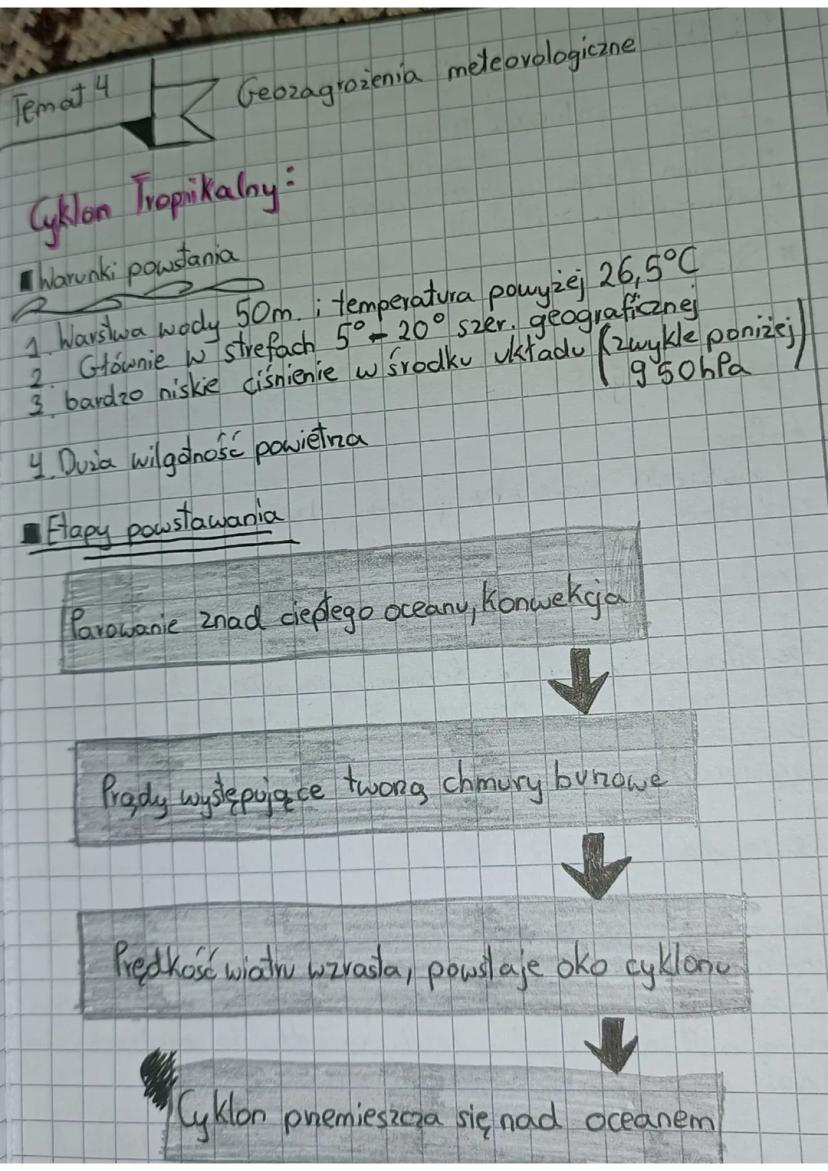 Temat 4
Geozagrożenia meteorologiczne
Cyklon Tropikalny:
Warunki powstania
1. Warstwa wody 50m. i temperatura powyżej 26,5°C
2. Głównie w strefach 5°-20° szer. geograficznej
3. bardzo niskie ciśnienie w środku układu (zwykle poniżej
950hPa)
4. Duża wilgotność powietrza
Etapy powstawania
Parowanie znad ciepłego oceanu, konwekcja
Prądy występujące tworzą chmury burzowe
Prędkość wiatru wzrasta, powstaje oko cyklonu
Cyklon przemieszcza się nad oceanem